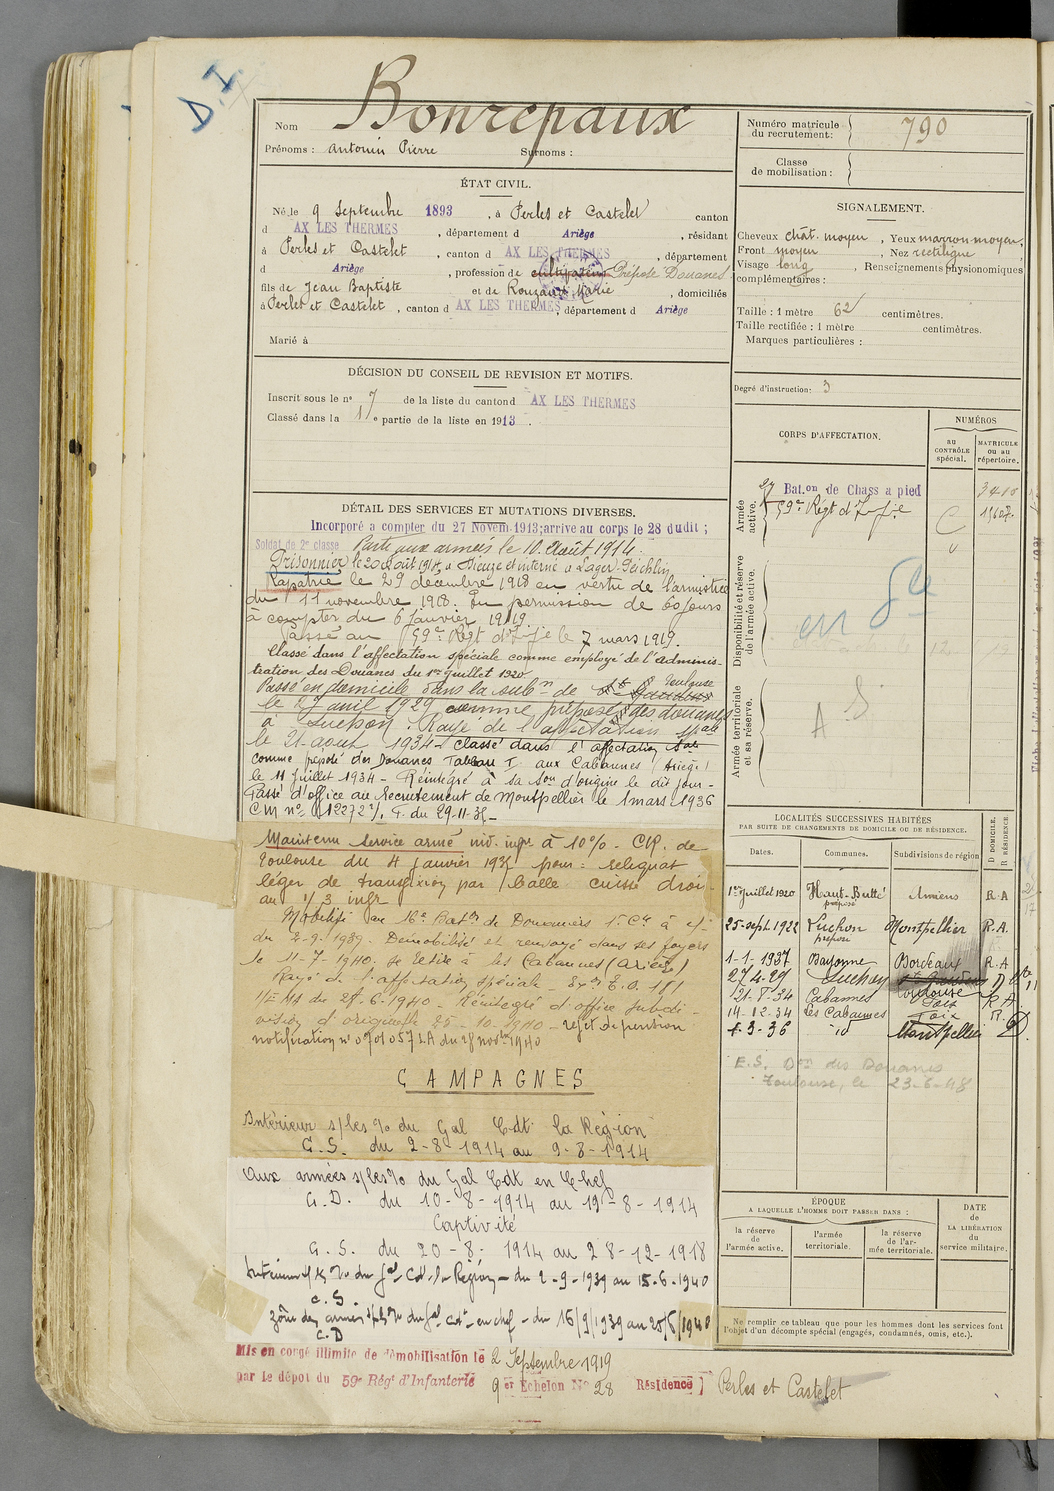 D.I
Nom Bonrepaux
Prénoms : Antonin Pierre Surnoms :
ÉTAT CIVIL.
Né le 9 Septembre 1893, à Perles et Castelet canton
d AX LES THERMES, département d Ariège, résidant
à Perles et Castelet, canton d AX LES THERMES, département
d Ariège, profession de cultivateur Préposé Douanes
fils de Jean Baptiste et de Rouzaud Marie, domiciliés
à Perles et Castelet, canton d AX LES THERMES, département d Ariège
Marié à
DÉCISION DU CONSEIL DE REVISION ET MOTIFS.
Inscrit sous le n° 7 de la liste du canton d AX LES THERMES
Classé dans la 1re partie de la liste en 1913.
DÉTAIL DES SERVICES ET MUTATIONS DIVERSES.
Incorporé a compter du 27 Novem. 1913; arrive au corps le 28 dudit ;
Soldat de 2e classe Parti aux armées le 10 Août 1914.
Prisonnier le 20 Août 1914, à Dieuze et interné à Lager-Lechfeld
Rapatrié le 29 décembre 1918 en vertu de l'armistice
du 11 novembre 1918. En permission de 60 jours
à compter du 6 janvier 1919
Passé au 59e Régt d'Infie le 7 mars 1919.
Classé dans l'affectation spéciale comme employé de l'adminis-
tration des Douanes du 1er juillet 1920
Passé en domicile dans la subon de Toulouse
le 27 avril 1929 comme préposé des douanes
à Luchon. Rayé de l'affectation spale
le 21 aout 1934 - Classé dans l'affectation sale
comme préposé des Douanes Tableau I aux Cabannes (Ariège)
le 11 juillet 1934 - Réintégré à sa son d'origine le dit jour -
Passé d'office au Recrutement de Montpellier le 1 mars 1936
CM no 12272 1/1. T. du 29-11-35 -
Maintenu service armé ind. infre à 10% - CR. de
Toulouse du 4 janvier 1935 pour : reliquat
léger de transfixion par balle cuisse droi-
au 1/3 infr
Mobilisé au 16e Baton de Douaniers 1e Cie à
du 2-9-1939. Démobilisé et renvoyé dans ses foyers
le 11-7-1940. Se retire à les Cabannes (Ariège)
Rayé de l'affectation spéciale - T.O. 181
du 27-6-1940 - Réintégré d'office subdi-
vision d'origine 25-10-1940 - rejet de pension
notification n° du 28 novbre 1940
CAMPAGNES
Intérieur s/les % du Gal Cdt la Région
C.S. du 2-8-1914 au 9-8-1914
Aux armées s/les % du Gal Cdt en Chef
C.D. du 10-8-1914 au 19-8-1914
Captivité
C.S. du 20-8-1914 au 28-12-1918
Intérieur s/les % du Gal Cdt la Région - du 2-9-1939 au 15-6-1940
C.S.
Zône des armées s/les % du Gal Cdt en chef - du 16/9/1939 au 25/6/1940
C.D
Mis en congé illimité de démobilisation le 2 Septembre 1919
par le dépôt du 59e Régt d'Infanterie 9er Echelon No 28 Résidence } Perles et Castelet
Numéro matricule du recrutement: 790
Classe de mobilisation :
SIGNALEMENT.
Cheveux chât. moyen, Yeux marron moyen,
Front moyen, Nez rectiligne
Visage long, Renseignements physionomiques
complémentaires :
Taille : 1 mètre 62 centimètres.
Taille rectifiée : 1 mètre centimètres.
Marques particulières :
Degré d'instruction: 3
CORPS D'AFFECTATION.
NUMÉROS
AU CONTRÔLE spécial.
MATRICULE OU AU répertoire.
Armée active.
27 Bat.on de Chass a pied
59e Régt d'Infie
Disponibilité et réserve de l'armée active.
Armée territoriale et sa réserve.
A S
LOCALITÉS SUCCESSIVES HABITÉES
PAR SUITE DE CHANGEMENTS DE DOMICILE OU DE RÉSIDENCE.
Dates. Communes. Subdivisions de région D DOMICILE. R RÉSIDENCE.
1er juillet 1920 Haut-Butté préposé Amiens R.A
25 sept. 1922 Luchon préposé Montpellier R.A.
1-1-1937 Bayonne Bordeaux R.A
27-4-29 Luchon St Gaudens Toulouse D
21-8-34 Cabannes Foix R.A.
14-12-34 Les Cabannes Foix R.
1-3-36 id Montpellier D.
E.S. Don des Douanes
Toulouse, le 23-6-48
ÉPOQUE
A LAQUELLE L'HOMME DOIT PASSER DANS :
la réserve de l'armée active.
l'armée territoriale.
la réserve de l'armée territoriale.
DATE de LA LIBÉRATION du service militaire.
Ne remplir ce tableau que pour les hommes dont les services font
l'objet d'un décompte spécial (engagés, condamnés, omis, etc.).